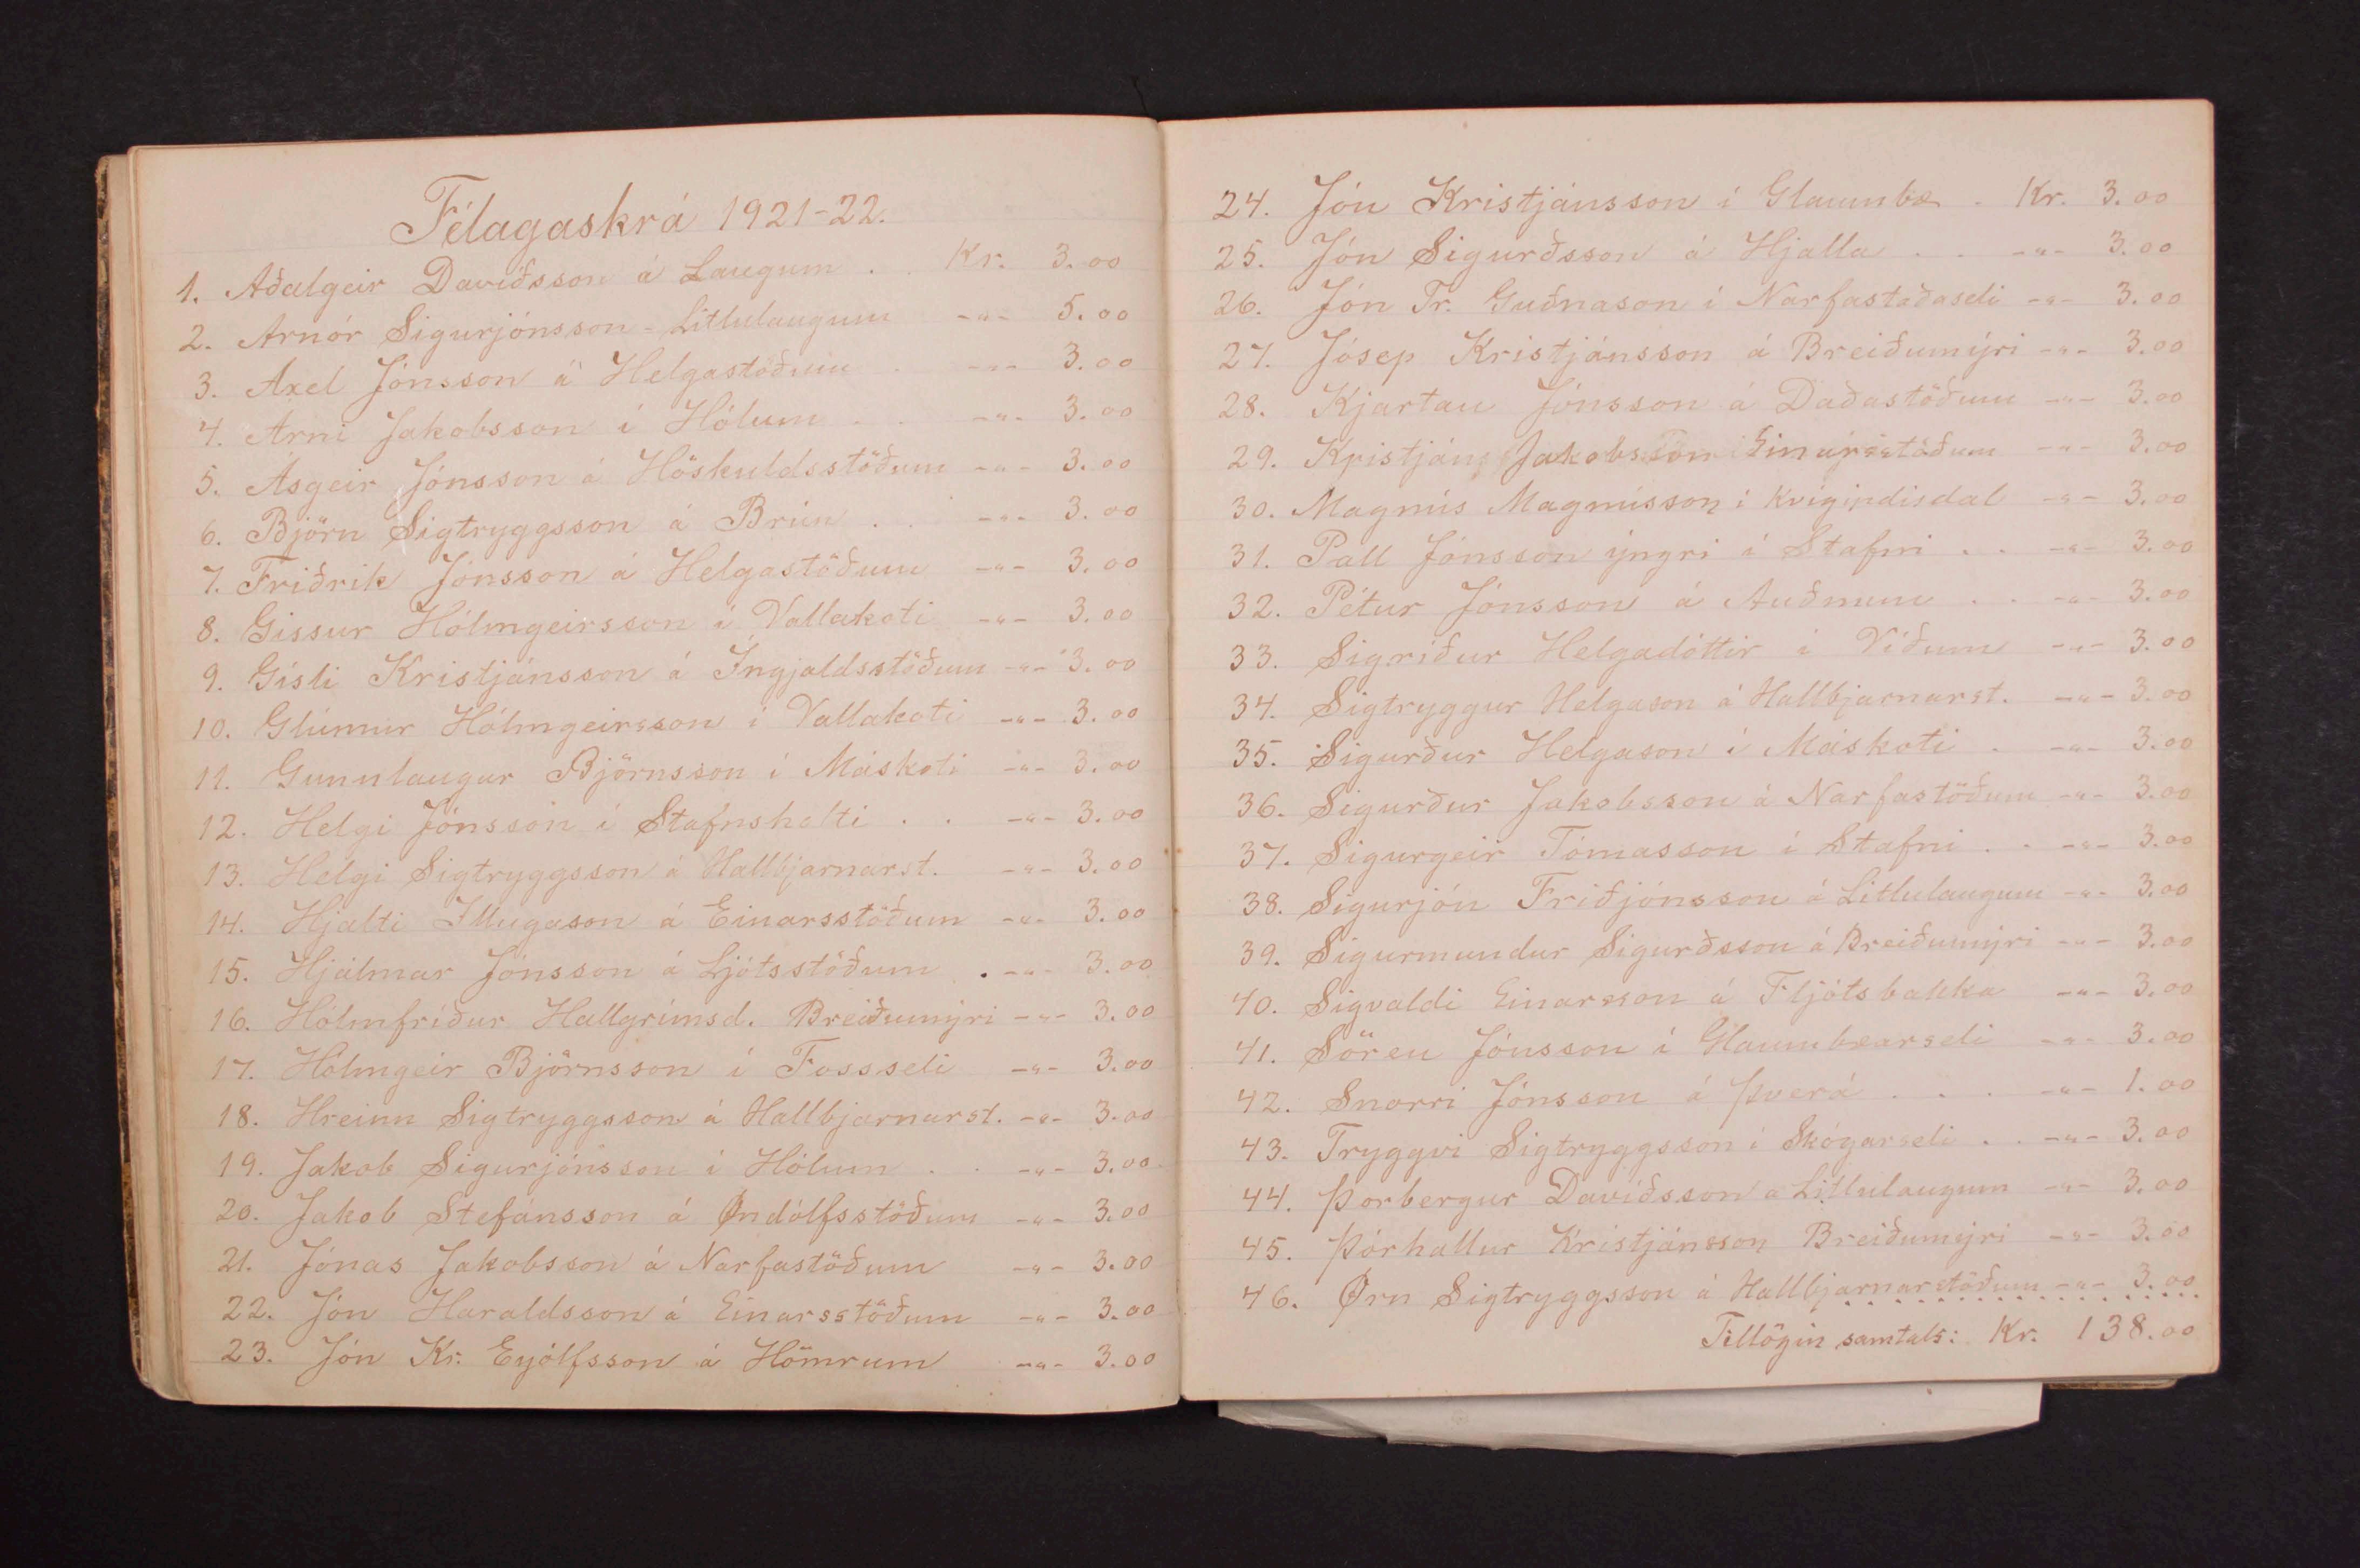 Félagaskrá 1921-22.
1. Aðalgeir Davíðsson á Laugum . . Kr. 3.00
2. Arnór Sigurjónsson - Litlulaugum -"- 5.00
3. Axel Jónsson á Helgastöðum . -"- 3.00
4. Árni Jakobsson í Hólum . . -"- 3.00
5. Ásgeir Jónsson á Höskuldsstöðum -"- 3.00
6. Björn Sigtryggsson á Brún . . -"- 3.00
7. Friðrik Jónsson á Helgastöðum -"- 3.00
8. Gissur Hólmgeirsson í Vallakoti -"- 3.00
9. Gísli Kristjánsson á Ingjaldsstöðum -"- 3.00
10. Glúmur Hólmgeirsson í Vallakoti -"- 3.00
11. Gunnlaugur Björnsson í Máskoti -"- 3.00
12. Helgi Jónsson í Stafnsholti . . -"- 3.00
13. Helgi Sigtryggsson á Hallbjarnarst. -"- 3.00
14. Hjalti Illugason á Einarsstöðum -"- 3.00
15. Hjálmar Jónsson á Ljótsstöðum . -"- 3.00
16. Hólmfríður Hallgrímsd. Breiðumýri -"- 3.00
17. Hólmgeir Björnsson í Fossseli -"- 3.00
18. Hreinn Sigtryggsson á Hallbjarnarst. -"- 3.00
19. Jakob Sigurjónsson í Hólum . . -"- 3.00
20. Jakob Stefánsson á Öndólfsstöðum -"- 3.00
21. Jónas Jakobsson á Narfastöðum -"- 3.00
22. Jón Haraldsson á Einarsstöðum -"- 3.00
23. Jón Kr. Eyjólfsson á Hömrum -"- 3.00
24. Jón Kristjánsson í Glaumbæ . Kr. 3.00
25. Jón Sigurðsson á Hjalla . . -"- 3.00
26. Jón Tr. Guðnason í Narfastaðaseli -"- 3.00
27. Jósep Kristjánsson á Breiðumýri -"- 3.00
28. Kjartan Jónsson á Daðastöðum -"- 3.00
29. Kristján Jakobsson Einarsstöðum -"- 3.00
30. Magnús Magnússon í Kvígindisdal -"- 3.00
31. Páll Jónsson yngri í Stafni . . -"- 3.00
32. Pétur Jónsson á Auðnum . . -"- 3.00
33. Sigríður Helgadóttir í Víðum -"- 3.00
34. Sigtryggur Helgason á Hallbjarnarst. -"- 3.00
35. Sigurður Helgason í Máskoti . -"- 3.00
36. Sigurður Jakobsson á Narfastöðum -"- 3.00
37. Sigurgeir Tómasson í Stafni . . -"- 3.00
38. Sigurjón Friðjónsson á Litlulaugum -"- 3.00
39. Sigurmundur Sigurðsson á Breiðumýri -"- 3.00
40. Sigvaldi Einarsson á Fljótsbakka -"- 3.00
41. Sören Jónsson í Glaumbæarseli -"- 3.00
42. Snorri Jónsson á Þverá . . . -"- 1.00
43. Tryggvi Sigtryggsson í Skógarseli . . -"- 3.00
44. Þorbergur Davíðsson a Litlulaugum -"- 3.00
45. Þórhallur Kristjánsson Breiðumýri -"- 3.00
46. Örn Sigtryggsson á Hallbjarnarstöðum -"- 3.00
Tillögin samtals: Kr. 138.00